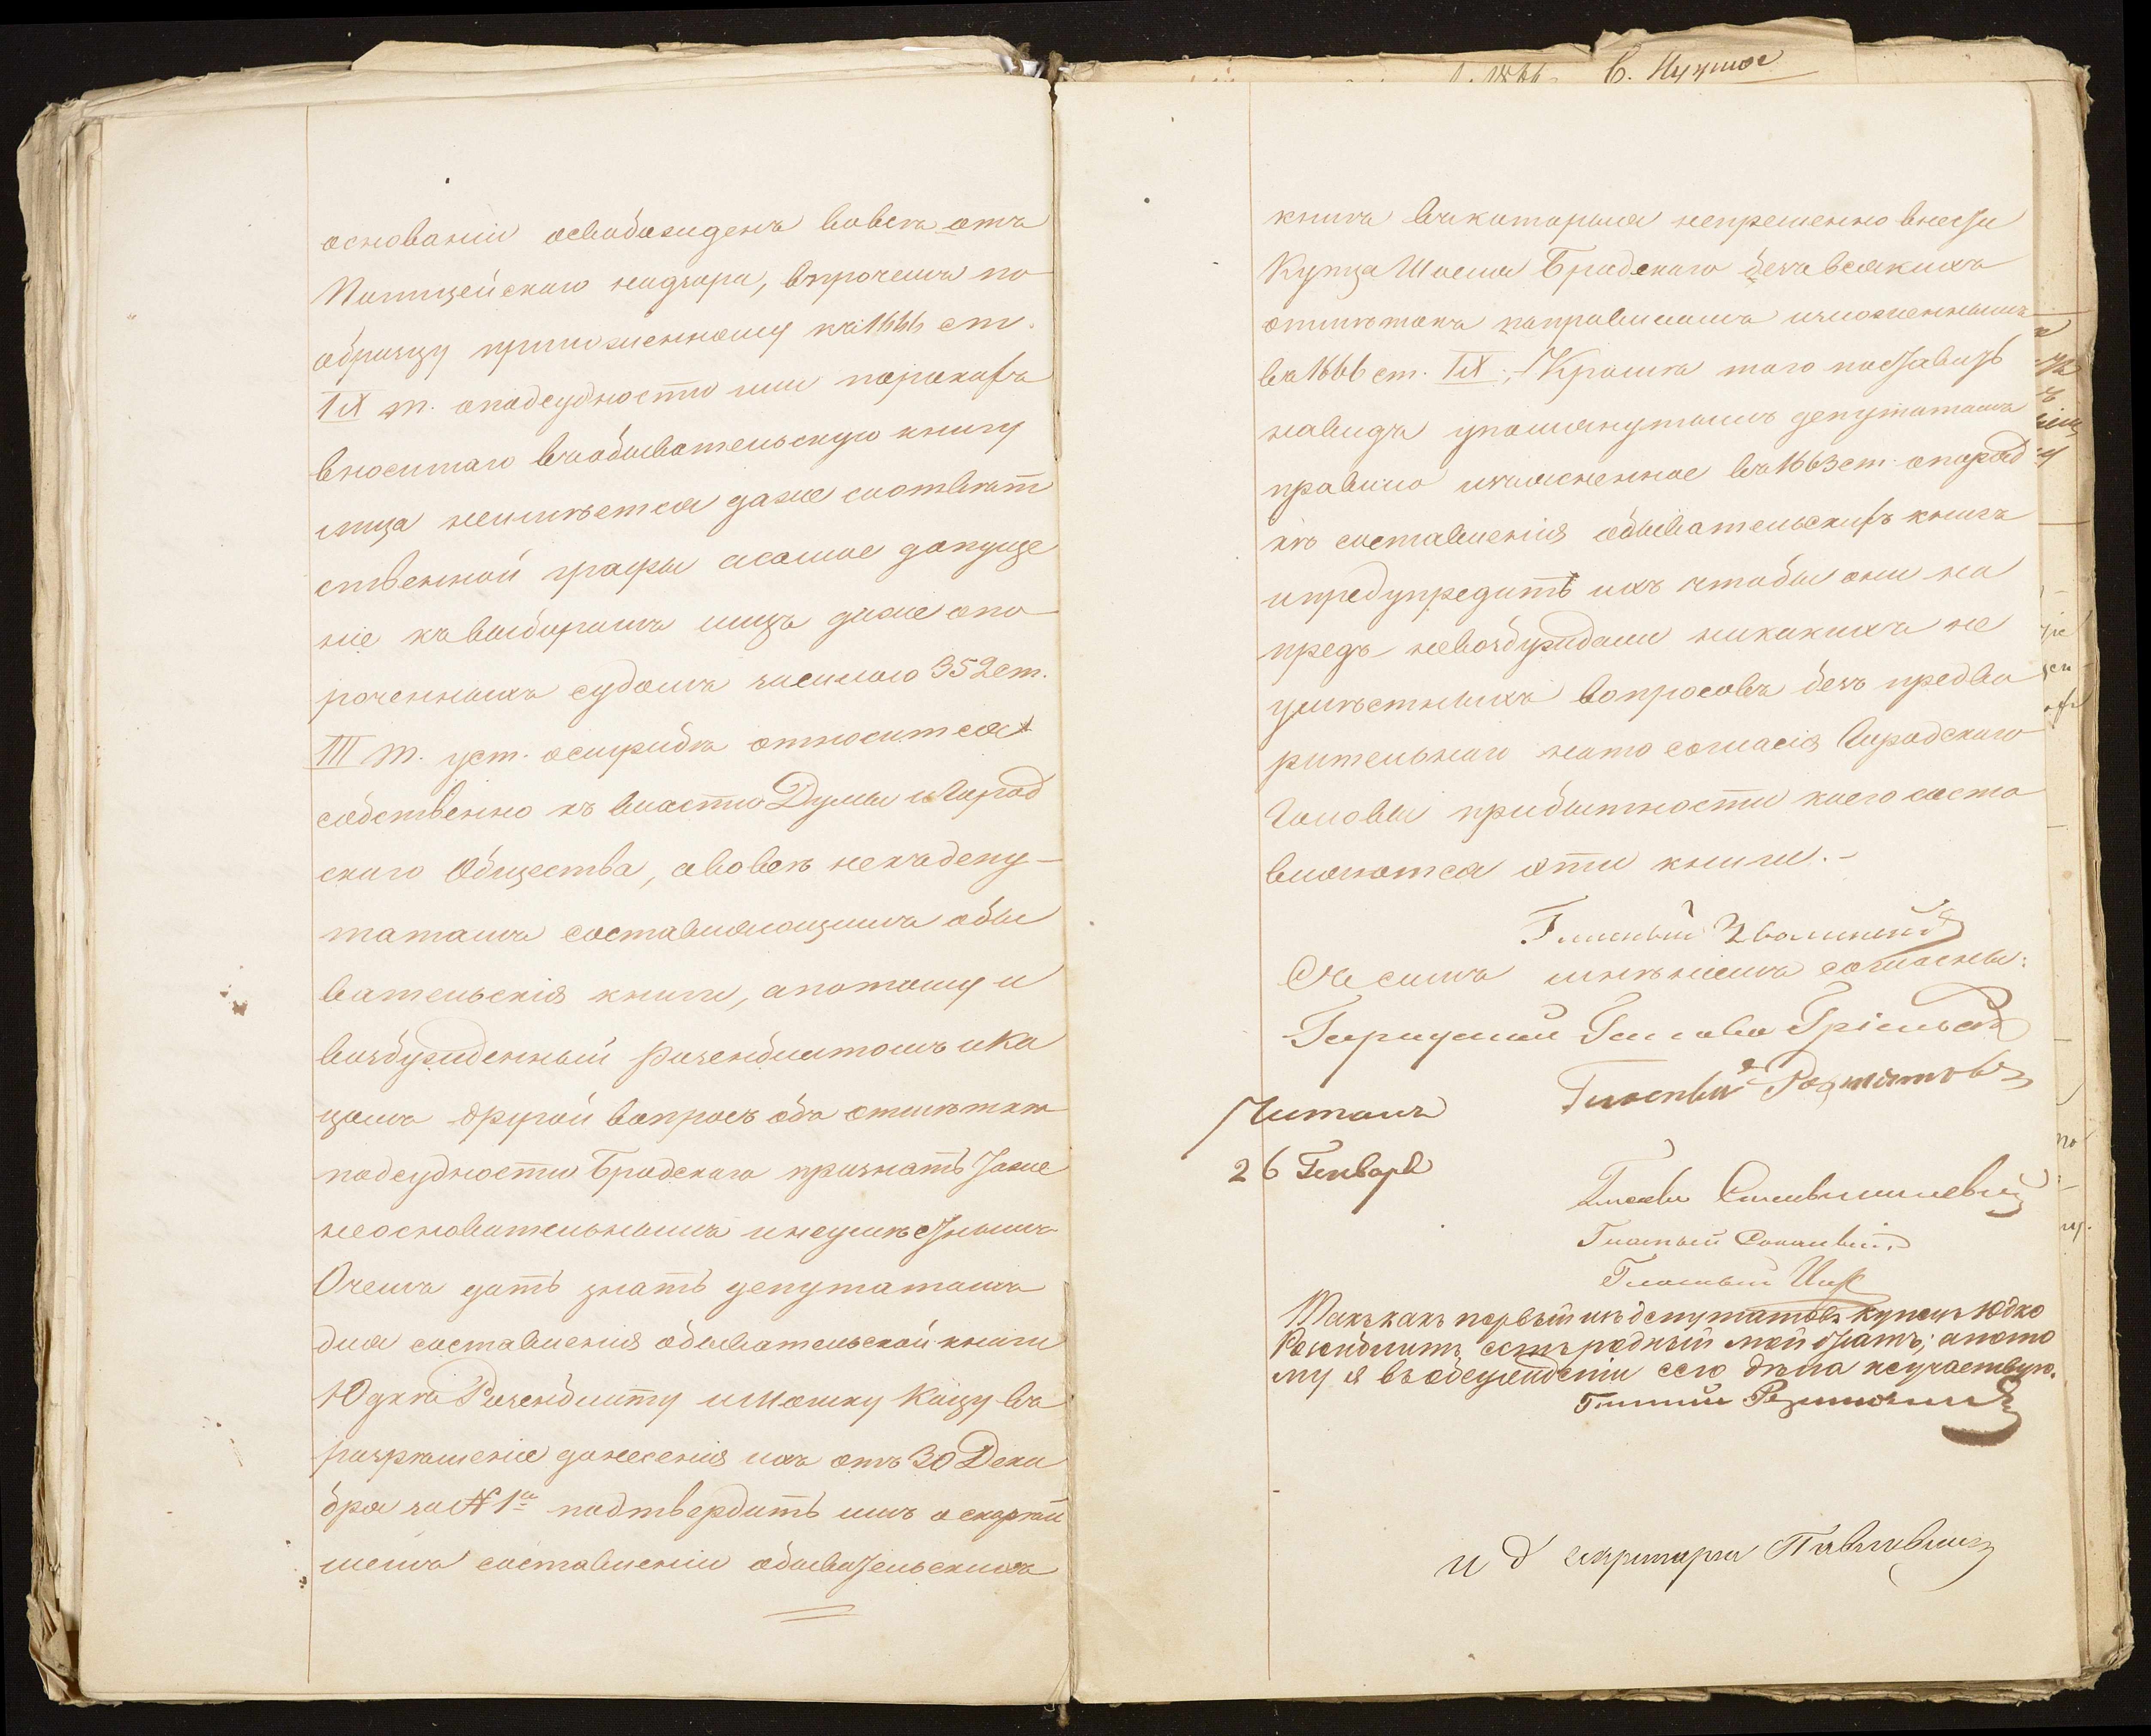 основаніи освобожденъ вовсѣ отъ
Полицейскаго надзора, впрочемъ по
образцу приложенному къ 1666 ст.
IX т. о подсудности или порокахъ
вносимаго въ обывательскую книгу
лица неимѣется даже соотвѣт
ственной графы а самое допуще
ніе къ выборамъ лицъ даже опо
роченныхъ судомъ силою 352 ст.
III т. уст. о служб. относится
собственно къ власти Думы и Город
скаго Общества, а вовсѣ не къ депу-
татамъ составляющимъ обы
вательскія книги, а потому и
возбужденный Розенблитомъ и Ка
цомъ другой вопросъ объ отмѣткѣ
подсудности Бродскаго признать тоже
неосновательнымъ и неумѣстнымъ
О чемъ дать знать депутатамъ
для составленія обывательской книги
Юдкѣ Розенблиту и Мошку Кацу въ
разрѣшеніе донесенія ихъ отъ 30 Дека
бря за № 1м подтвердить имъ о скорѣй
шемъ составленіи обывательскихъ
С. Нужное
книгъ въ которыя непремѣнно внести
Купца Шаема Бродскаго безъ всякихъ
отмѣтокъ по правиламъ изложеннымъ
въ 1666 ст. IX т. Кромѣ того поставить
на видъ упомянутымъ депутатамъ
правило изъясненное въ 1663 ст. о поряд
кѣ составленія обывательскихъ книгъ
и предупредить ихъ чтобы они на
предъ невозбуждали никакихъ не
умѣстныхъ вопросовъ безъ предва
рительнаго на то согласія Городскаго
Головы при бытности коего соста
вляются эти книги.-
Гласный
Съ симъ мнѣніемъ согласны:
Городской Голова
Гласный
Читалъ
26 Генваря
Гласный
Гласный
Гласный
Такъ какъ первый изъ депутатовъ купецъ Юдко
Розенблитъ есть родный мой братъ; а пото
му я въ обсужденіи сего дѣла не участвую.
Гласный
и д секретаря Павловичъ